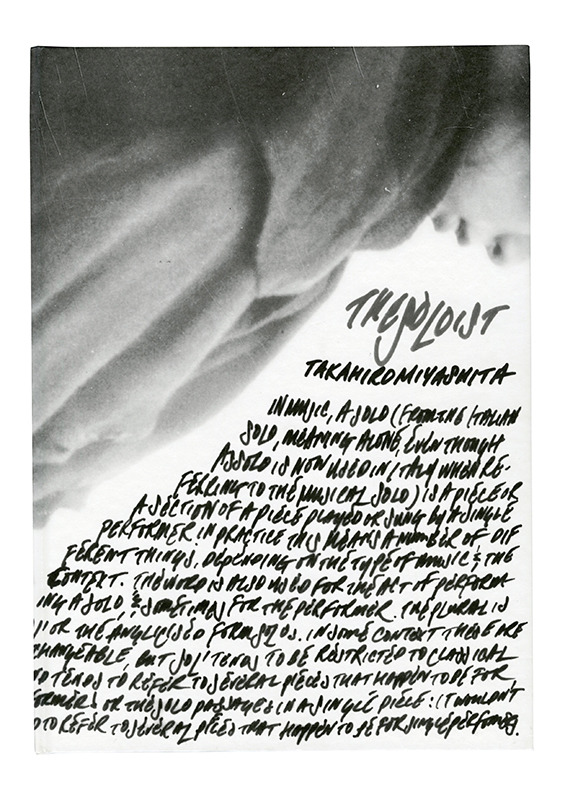 THE SOLOIST
TAKAHIROMIYASHITA
IN MUSIC, A SOLO (FROM THE ITALIAN
SOLO, MEANING ALONE, EVEN THOUGH
ASSOLO IS NOW USED IN ITALY WHEN RE-
FERRING TO THE MUSICAL SOLO) IS A PIECE OR
A SECTION OF A PIECE PLAYED OR SUNG BY A SINGLE
PERFORMER. IN PRACTICE THIS MEANS A NUMBER OF DIF
FERENT THINGS, DEPENDING ON THE TYPE OF MUSIC & THE
CONTEXT. THE WORD IS ALSO USED FOR THE ACT OF PERFORM
ING A SOLO, & SOMETIMES FOR THE PERFORMER. THE PLURAL IS
OR THE ANGLICISED FORM SOLOS. IN SOME CONTEXT THESE ARE
CHANGEABLE, BUT SOLI TENDS TO BE RESTRICTED TO CLASSICAL
TENDS TO REFER TO SEVERAL PIECES THAT HAPPEN TO BE FOR
FORMERS OR THE SOLO PASSAGES IN A SINGLE PIECE: IT WOULDN'T
TO REFER TO SEVERAL PIECES THAT HAPPEN TO BE FOR SINGLE PERFORMERS.